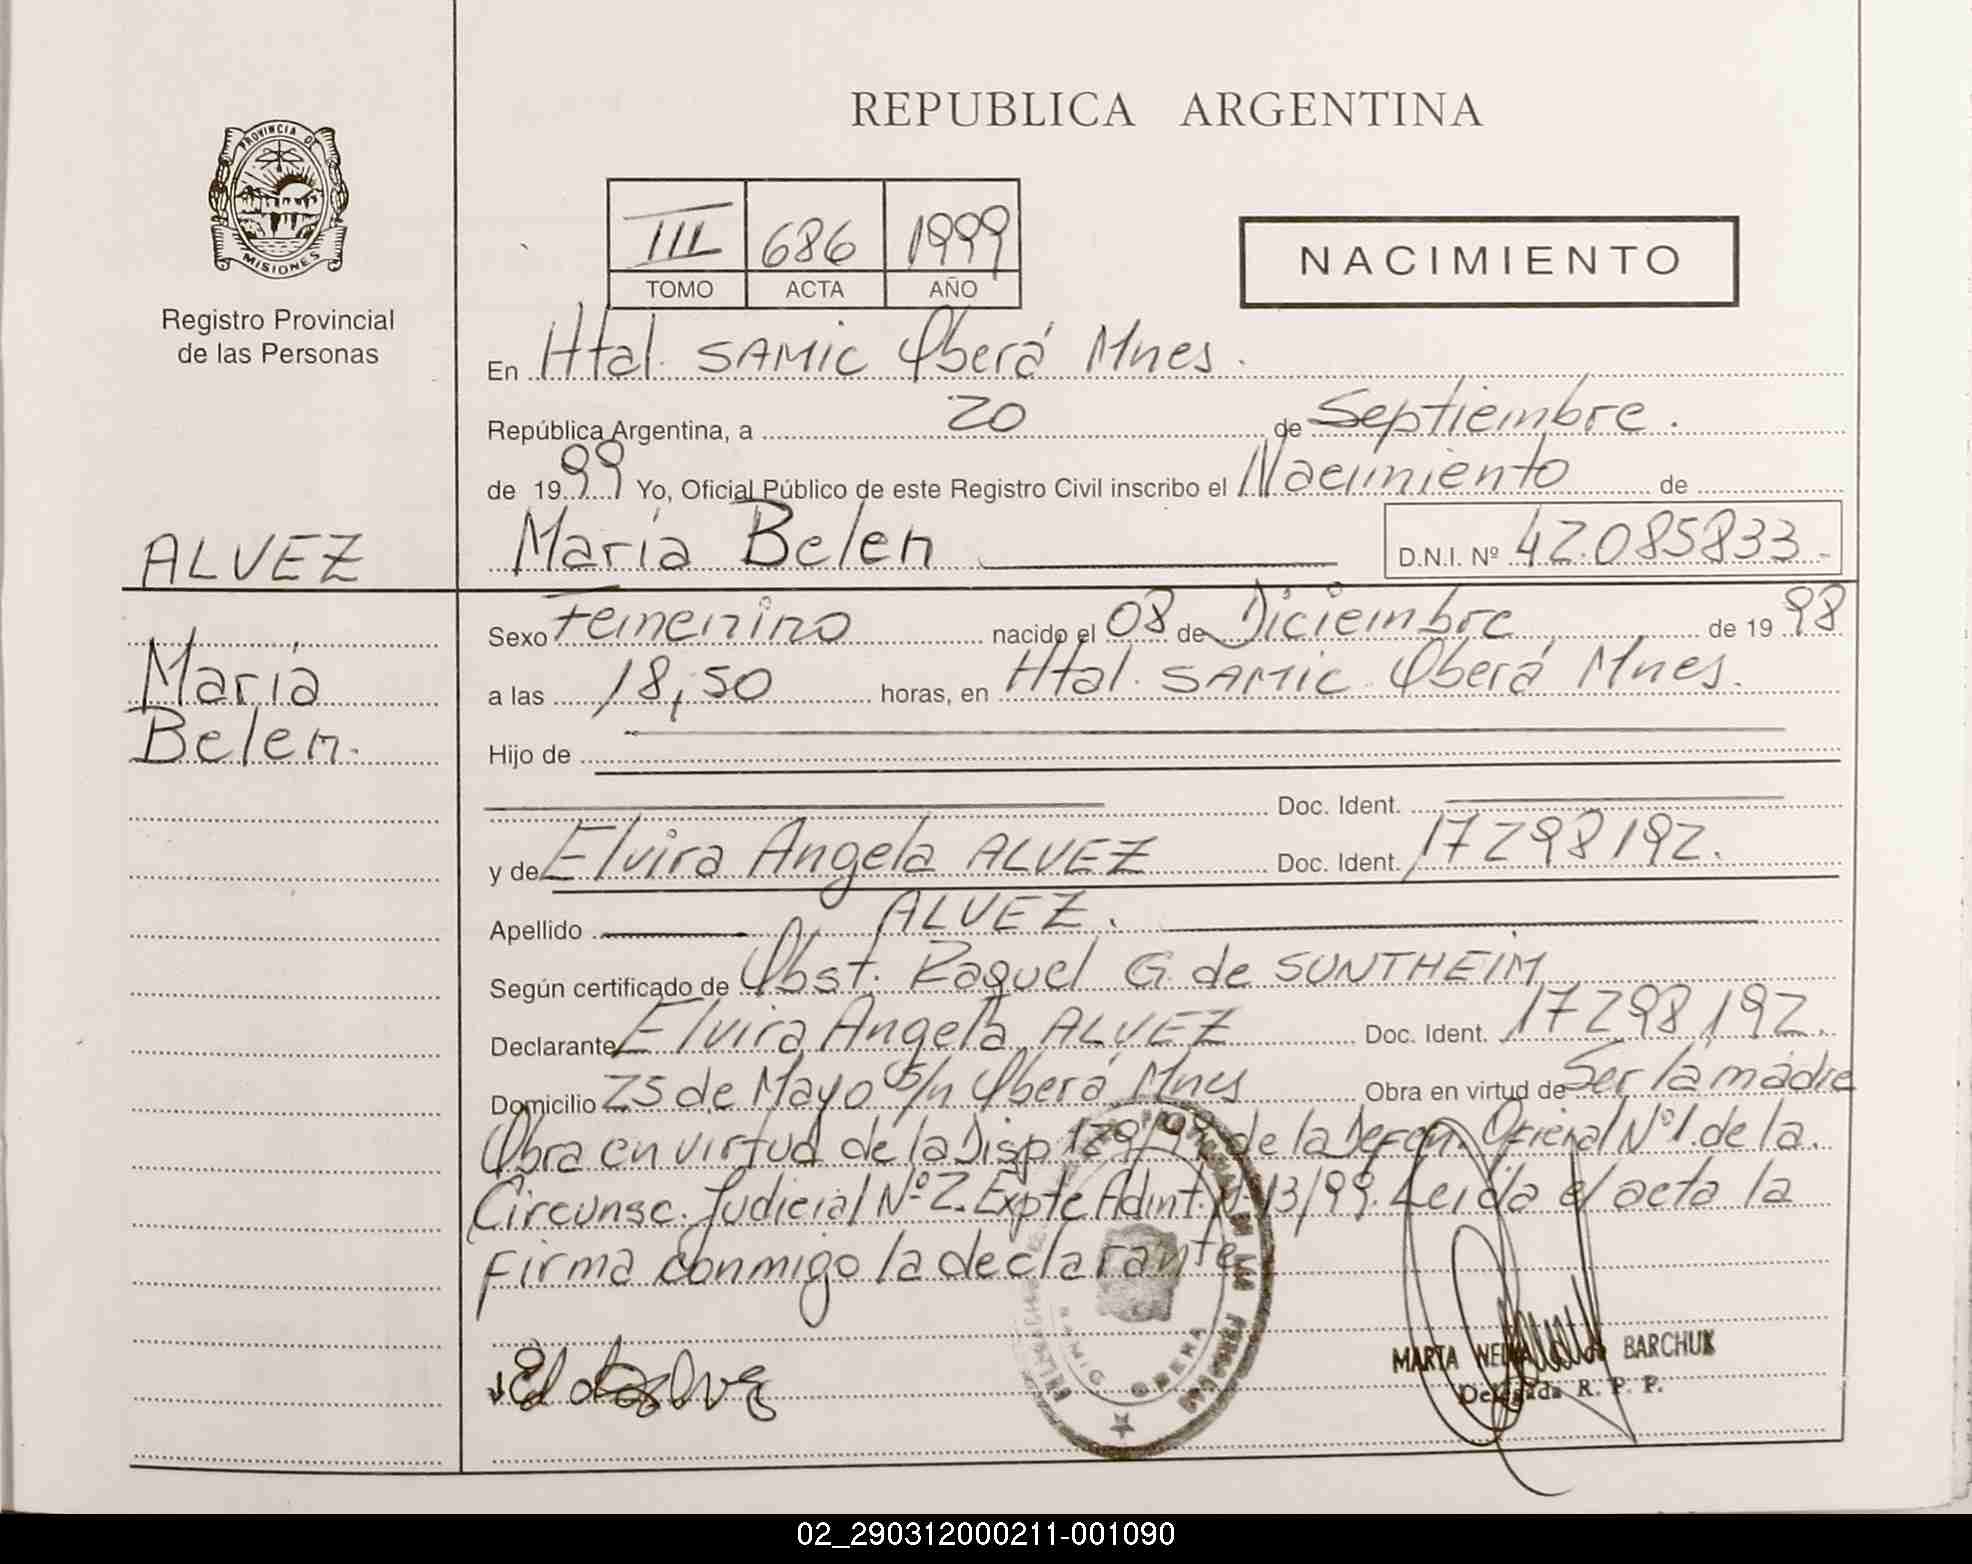 REPUBLICA ARGENTINA
PROVINCIA DE
MISIONES
Registro Provincial
de las Personas
III 686 1999
TOMO ACTA AÑO
NACIMIENTO
En Htal. SAMIC Oberá Mnes.
República Argentina, a 20 de Septiembre.
de 1999 Yo, Oficial Público de este Registro Civil inscribo el Nacimiento de
ALVEZ
María Belen D.N.I. Nº 42.085833.-
María
Belen.
Sexo Femenino nacido el 08 de Diciembre de 1998
a las 18,50 horas, en Htal. SAMIC Oberá Mnes.
Hijo de
Doc. Ident.
y de Elvira Angela ALVEZ Doc. Ident. 17298192.
Apellido ALVEZ.
Según certificado de Obst. Raquel G. de SUNTHEIM
Declarante Elvira Angela ALVEZ Doc. Ident. 17298192.
Domicilio 25 de Mayo S/n Oberá Mnes Obra en virtud de Ser la madre
Obra en virtud de la Disp 179/99 de la Defen. Oficial Nº1. de la
Circunsc. Judicial Nº2. Expte Admt. N- 13/99. Leida el acta la
Firma conmigo la declarante
MARTA BARCHUK
Delegada R. P. P.
OBERA
02_290312000211-001090